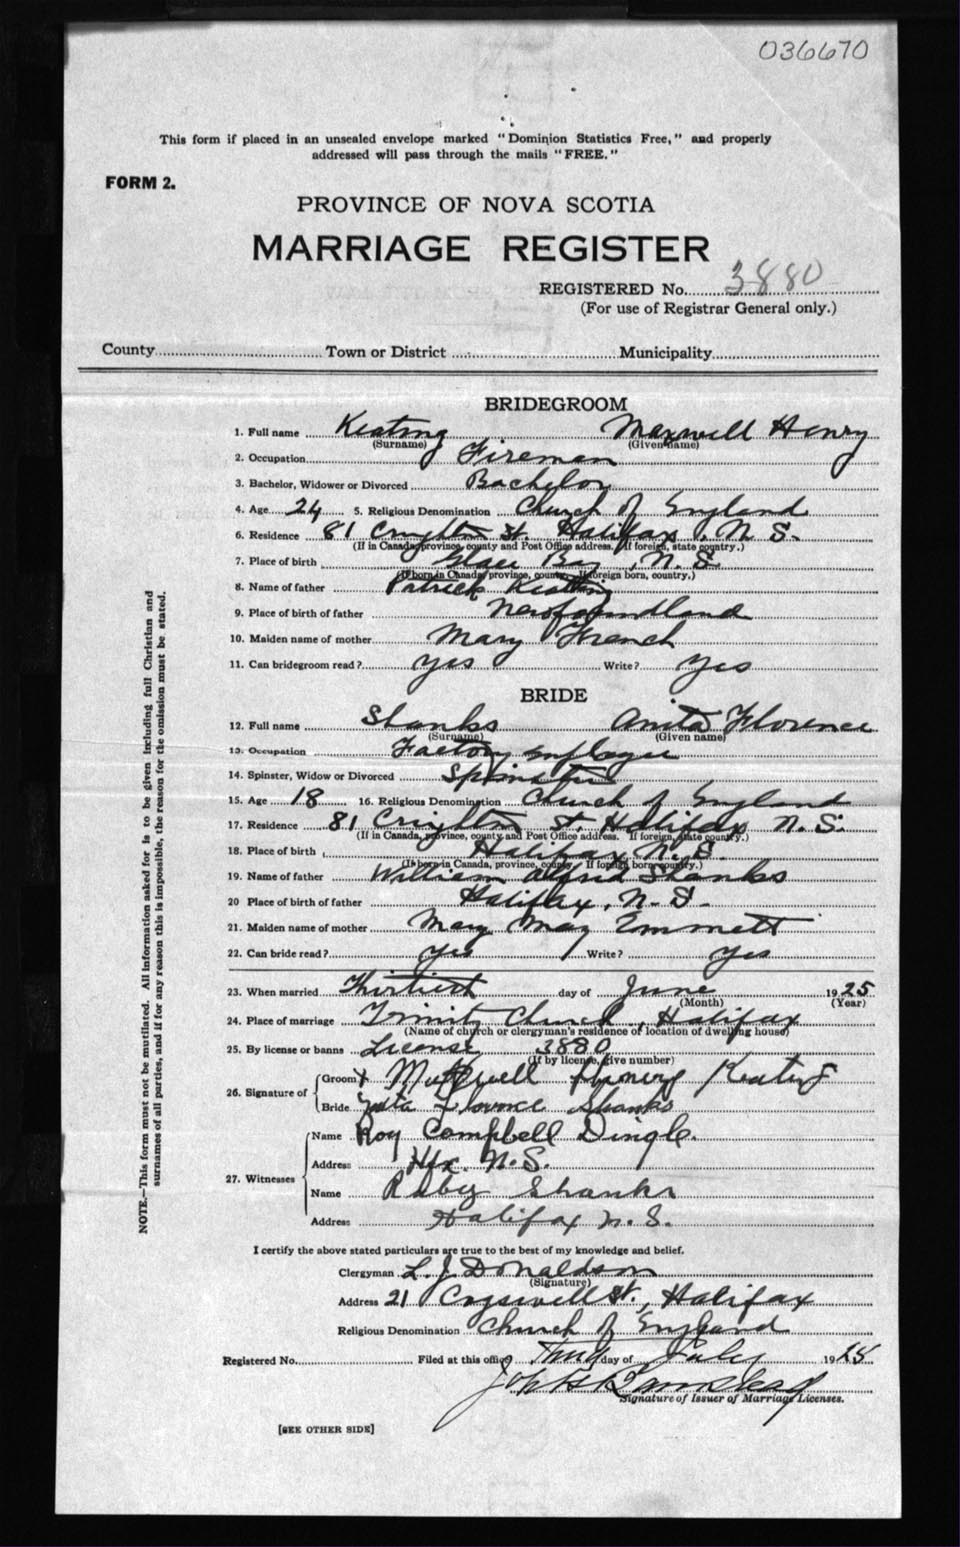 036670
This form if placed in an unsealed envelope marked "Dominion Statistics Free," and properly
addressed will pass through the mails "FREE."
FORM 2.
PROVINCE OF NOVA SCOTIA
MARRIAGE REGISTER
REGISTERED No. 3880
(For use of Registrar General only.)
County Town or District Municipality
BRIDEGROOM
1. Full name Keating Maxwell Henry
(Surname) (Given name)
2. Occupation Fireman
3. Bachelor, Widower or Divorced Bachelor
4. Age 24 5. Religious Denomination Church of England
6. Residence 81 Crighton St. Halifax, N. S.
(If in Canada, province, county and Post Office address. If foreign, state country.)
7. Place of birth Glace Bay, N. S.
(If born in Canada, province, county. If foreign born, country.)
8. Name of father Patrick Keating
9. Place of birth of father Newfoundland
10. Maiden name of mother Mary French
11. Can bridegroom read? yes Write? yes
BRIDE
12. Full name Shanks Anita Florence
(Surname) (Given name)
13. Occupation Factory Employee
14. Spinster, Widow or Divorced Spinster
15. Age 18 16. Religious Denomination Church of England
17. Residence 81 Crighton St. Halifax N. S.
(If in Canada, province, county and Post Office address. If foreign, state country.)
18. Place of birth Halifax N. S.
(If born in Canada, province, county. If foreign born, country.)
19. Name of father William Alfred Shanks
20 Place of birth of father Halifax, N. S.
21. Maiden name of mother Mary May Emmett
22. Can bride read? yes Write? yes
23. When married Thirtieth day of June 1925
(Month) (Year)
24. Place of marriage Trinity Church, Halifax
(Name of church or clergyman's residence or location of dwelling house)
25. By license or banns License 3880
(If by license, give number)
26. Signature of Groom x Maxwell Henery Keating
Bride Florence Shanks
27. Witnesses Name Roy Campbell Dingle.
Address Hfx. N.S.
Name Ruby Shanks
Address Halifax N. S.
I certify the above stated particulars are true to the best of my knowledge and belief.
Clergyman L. J. Donaldson
(Signature)
Address 21 Cogswell St., Halifax
Religious Denomination Church of England
Registered No. Filed at this office day of July 1925
Signature of Issuer of Marriage Licenses.
[SEE OTHER SIDE]
NOTE.—This form must not be mutilated. All information asked for is to be given including full Christian and
surnames of all parties, and if for any reason this is impossible, the reason for the omission must be stated.